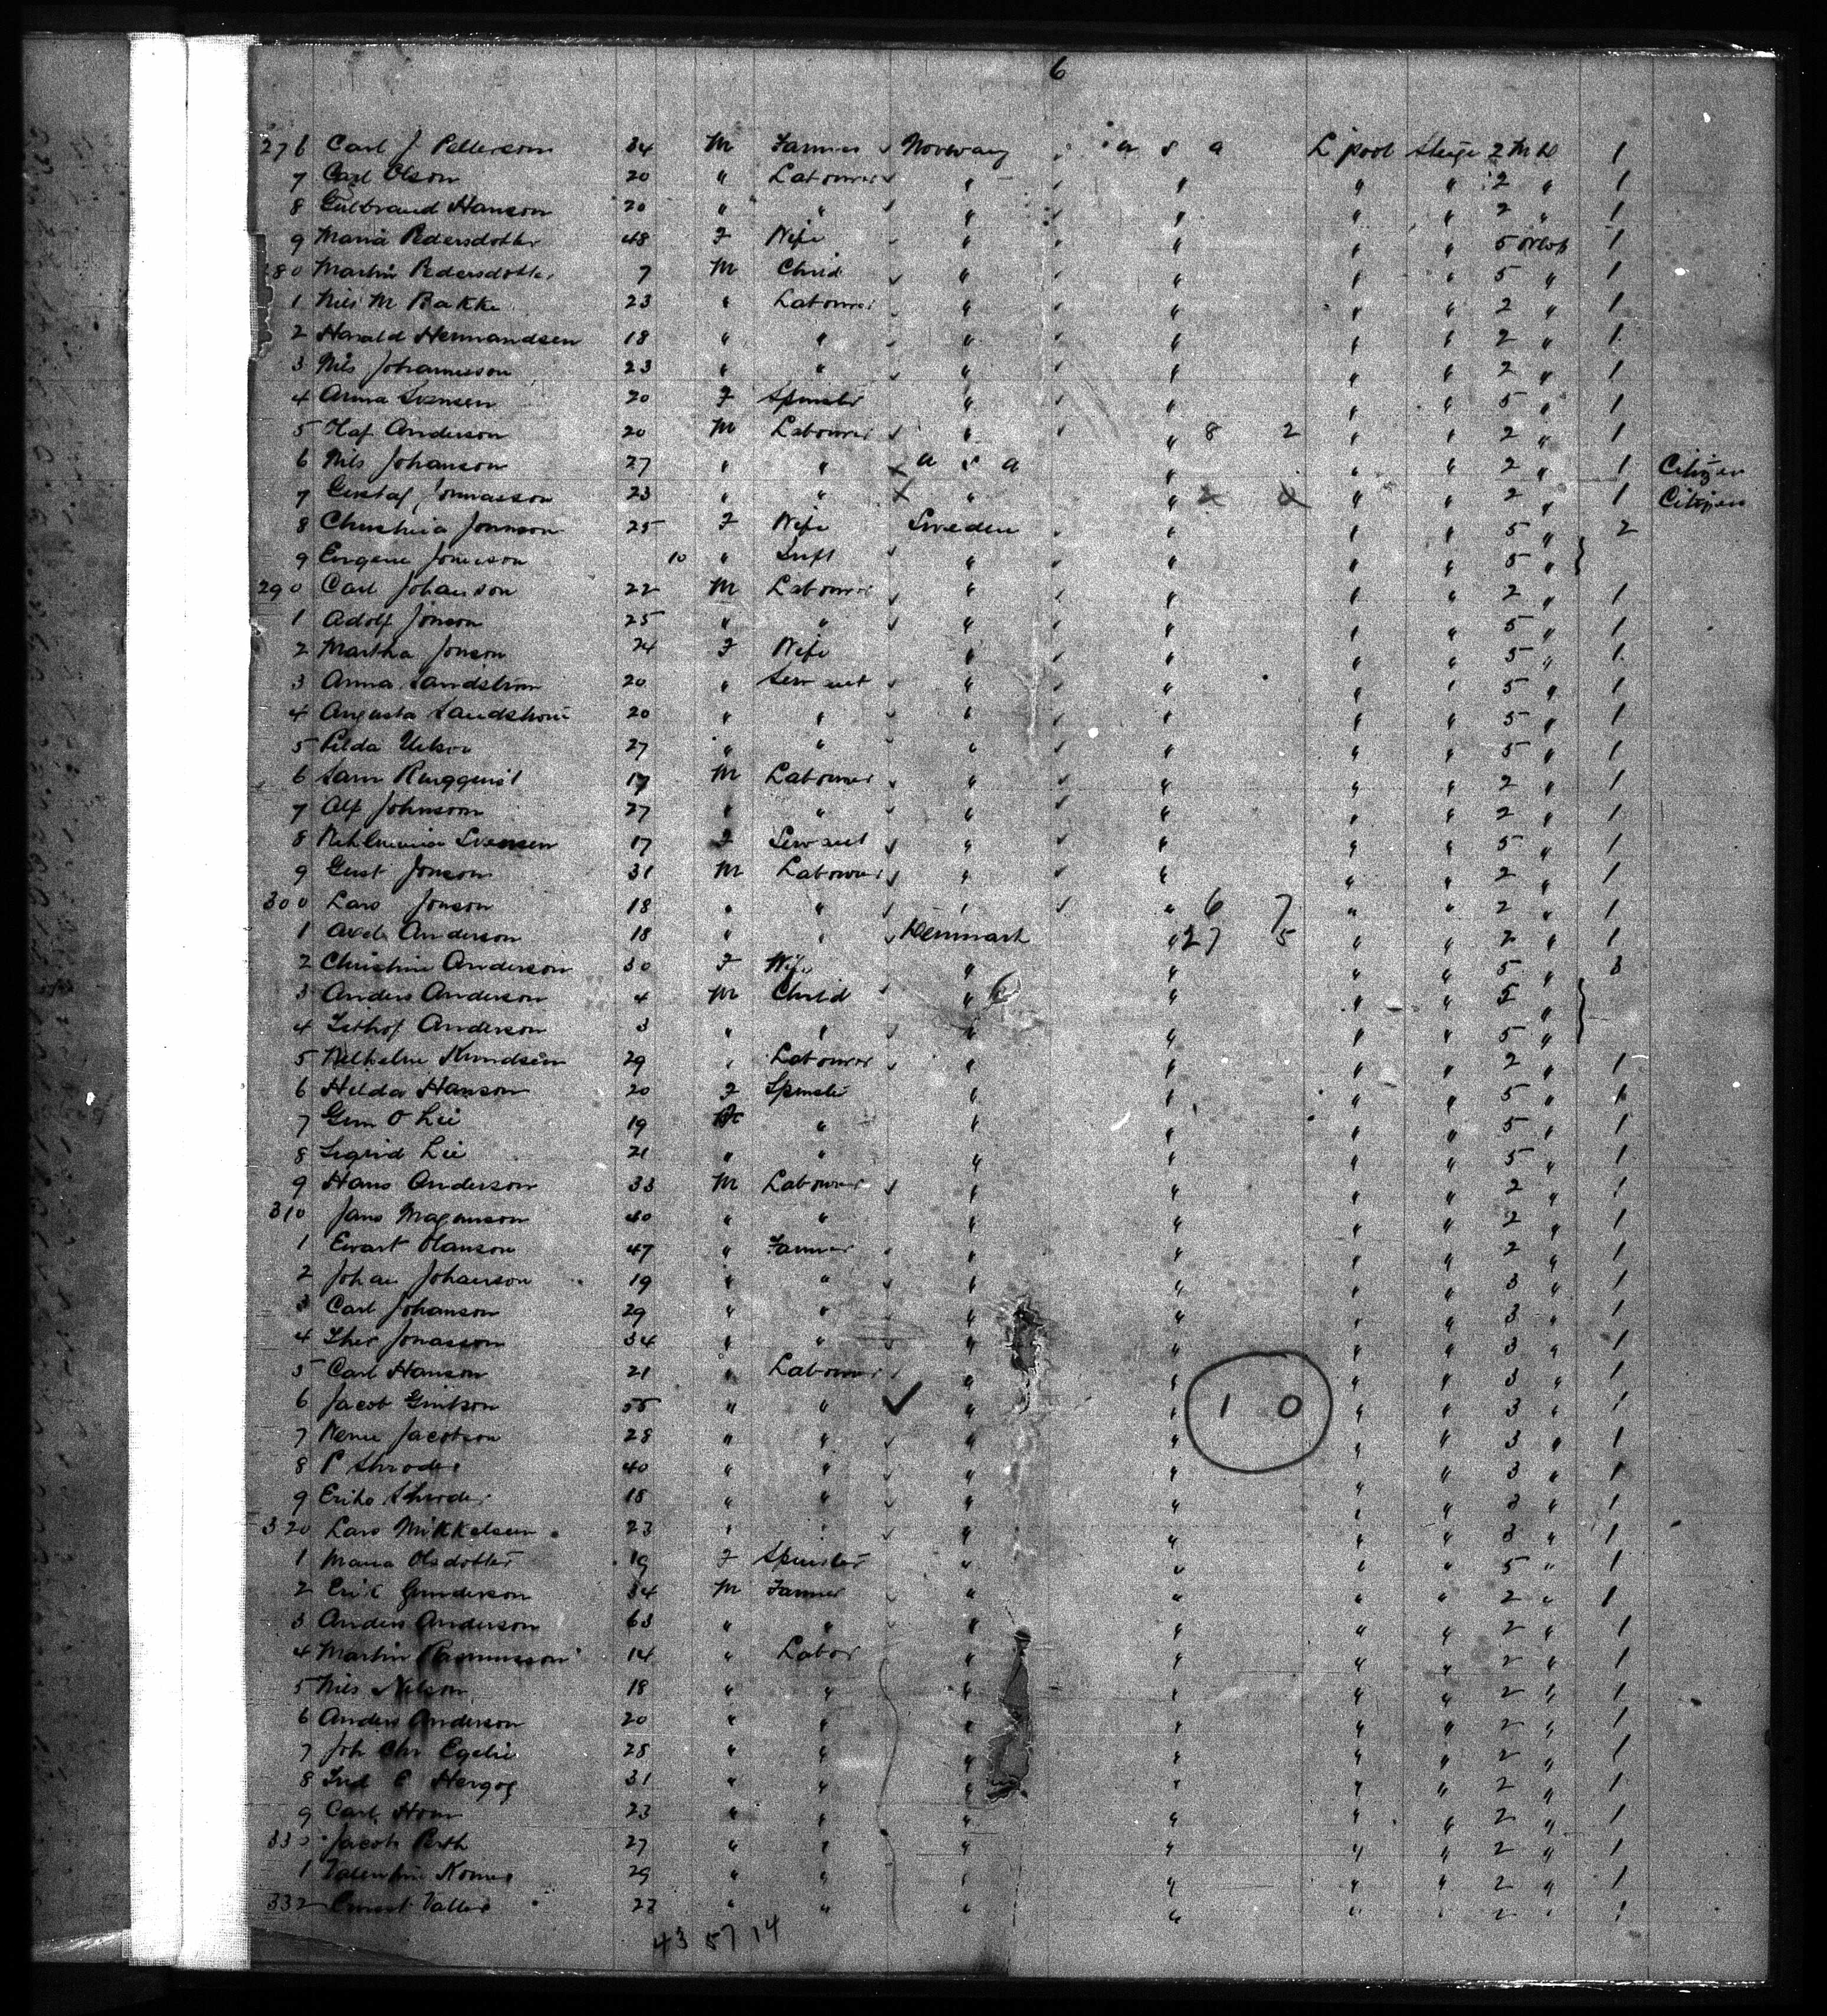 6
276 Carl J Petterson 34 M Farmer Norway U S A L'pool Steige 2 M D 1
7 Carl Olson 20 " Labourer " " " " 2 " 1
8 Gulbrand Hanson 20 " " " " " " 2 " 1
9 Maria Pedersdotter 48 F Wife " " " " 5 Orlop 1
280 Martin Pedersdotter 7 M Child " " " " 5 " 1
1 Nils M Bakke 23 " Labourer " " " " 2 " 1
2 Harald Hermandsen 18 " " " " " " 2 " 1
3 Nils Johannesson 23 " " " " " " 2 " 1
4 Anna Svensen 20 F Spinster " " " " 5 " 1
5 Olaf Anderson 20 M Labourer " " 8 2 " " 2 " 1
6 Nils Johanson 27 " " X U S A " " " 2 " 1 Citizen
7 Gustaf Jonnasson 23 " " X " " 2 " " 2 " 1 Citizen
8 Christina Jonnson 25 F Wife Sweden " " " 5 " 2
9 Eugene Jonnson 10 " Inft " " " " 5 "
290 Carl Johanson 22 M Labourer " " " " 2 " 1
1 Adolf Jonson 25 " " " " " " 5 " 1
2 Martha Jonson 24 F Wife " " " " 5 " 1
3 Anna Sandstrom 20 " Servant " " " " 5 " 1
4 Augusta Sandstrom 20 " " " " " " 5 " 1
5 27 " " " " " " 5 " 1
6 Sam Ringquist 17 M Labourer " " " " 2 " 1
7 Alf Johnson 27 " " " " " " 2 " 1
8 Svensen 17 F Servant " " " " 5 " 1
9 Gust Jonson 31 M Labourer " " " " 2 " 1
300 Lars Jonson 18 " " " " 6 7 " " 2 " 1
1 Axel Anderson 18 " " Denmark " 27 5 " " 2 " 1
2 Christine Anderson 30 F Wife " " " " 5 " 3
3 Anders Anderson 4 M Child " " " " 5 "
4 Anderson 3 " " " " " " 5 "
5 Wilhelm Knudsen 29 " Labourer " " " " 2 " 1
6 Hilda Hanson 20 F Spinster " " " " 5 " 1
7 O Lie 19 " " " " " 5 " 1
8 Sigrid Lie 21 " " " " " " 5 " 1
9 Hans Anderson 33 M Labourer " " " " 2 " 1
310 Jans Magnuson 40 " " " " " " 2 " 1
1 Ewart Hanson 47 " Farmer " " " " 2 " 1
2 Johan Johanson 19 " " " " " " 3 " 1
3 Carl Johanson 29 " " " " " " 3 " 1
4 Jonasson 34 " " " " " " 3 " 1
5 Carl Hanson 21 " Labourer " " " " 3 " 1
6 Jacob 55 " " " " 1 0 " " 3 " 1
7 Jacobson 28 " " " " " " 3 " 1
8 P Shroder 40 " " " " " " 3 " 1
9 Shroder 18 " " " " " " 3 " 1
320 Lars Mikkelsen 23 " " " " " " 3 " 1
1 Maria Olsdotter 19 F Spinster " " " " 5 " 1
2 Erik Gunderson 34 M Farmer " " " " 2 " 1
3 Anders Anderson 63 " " " " " " 2 " 1
4 Martin Rasmusson 14 " Labor " " " " 2 " 1
5 Nils Nelson 18 " " " " " " 2 " 1
6 Anders Anderson 20 " " " " " " 2 " 1
7 Joh Chr 28 " " " " " " 2 " 1
8 31 " " " " " " 2 " 1
9 Carl 23 " " " " " " 2 " 1
330 Jacob 27 " " " " " " 2 " 1
1 Valentin 29 " " " " " " 2 " 1
332 Ernest 27 " " " " " " 2 " 1
43 57 14